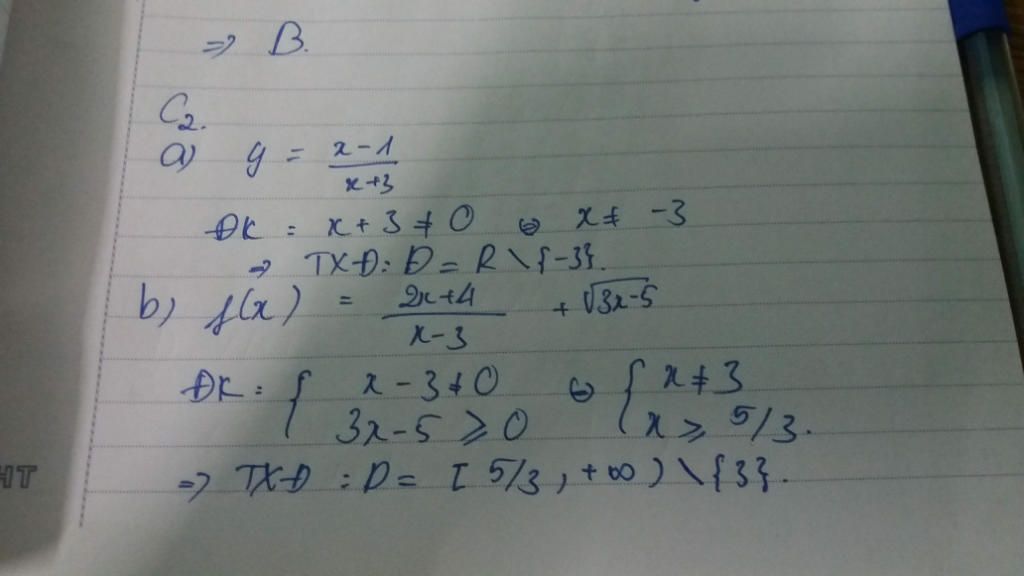 => B.
C2.
a) y = (x-1)/(x+3)
ĐK = x + 3 ≠ 0 ⇔ x ≠ -3
=> TXĐ: D = R \ {-3}.
b) f(x) = (2x+4)/(x-3) + √(3x-5)
ĐK: { x - 3 ≠ 0 ⇔ { x ≠ 3
3x-5 ≥ 0 x ≥ 5/3.
=> TXĐ : D = [5/3, +∞) \ {3}.
HT